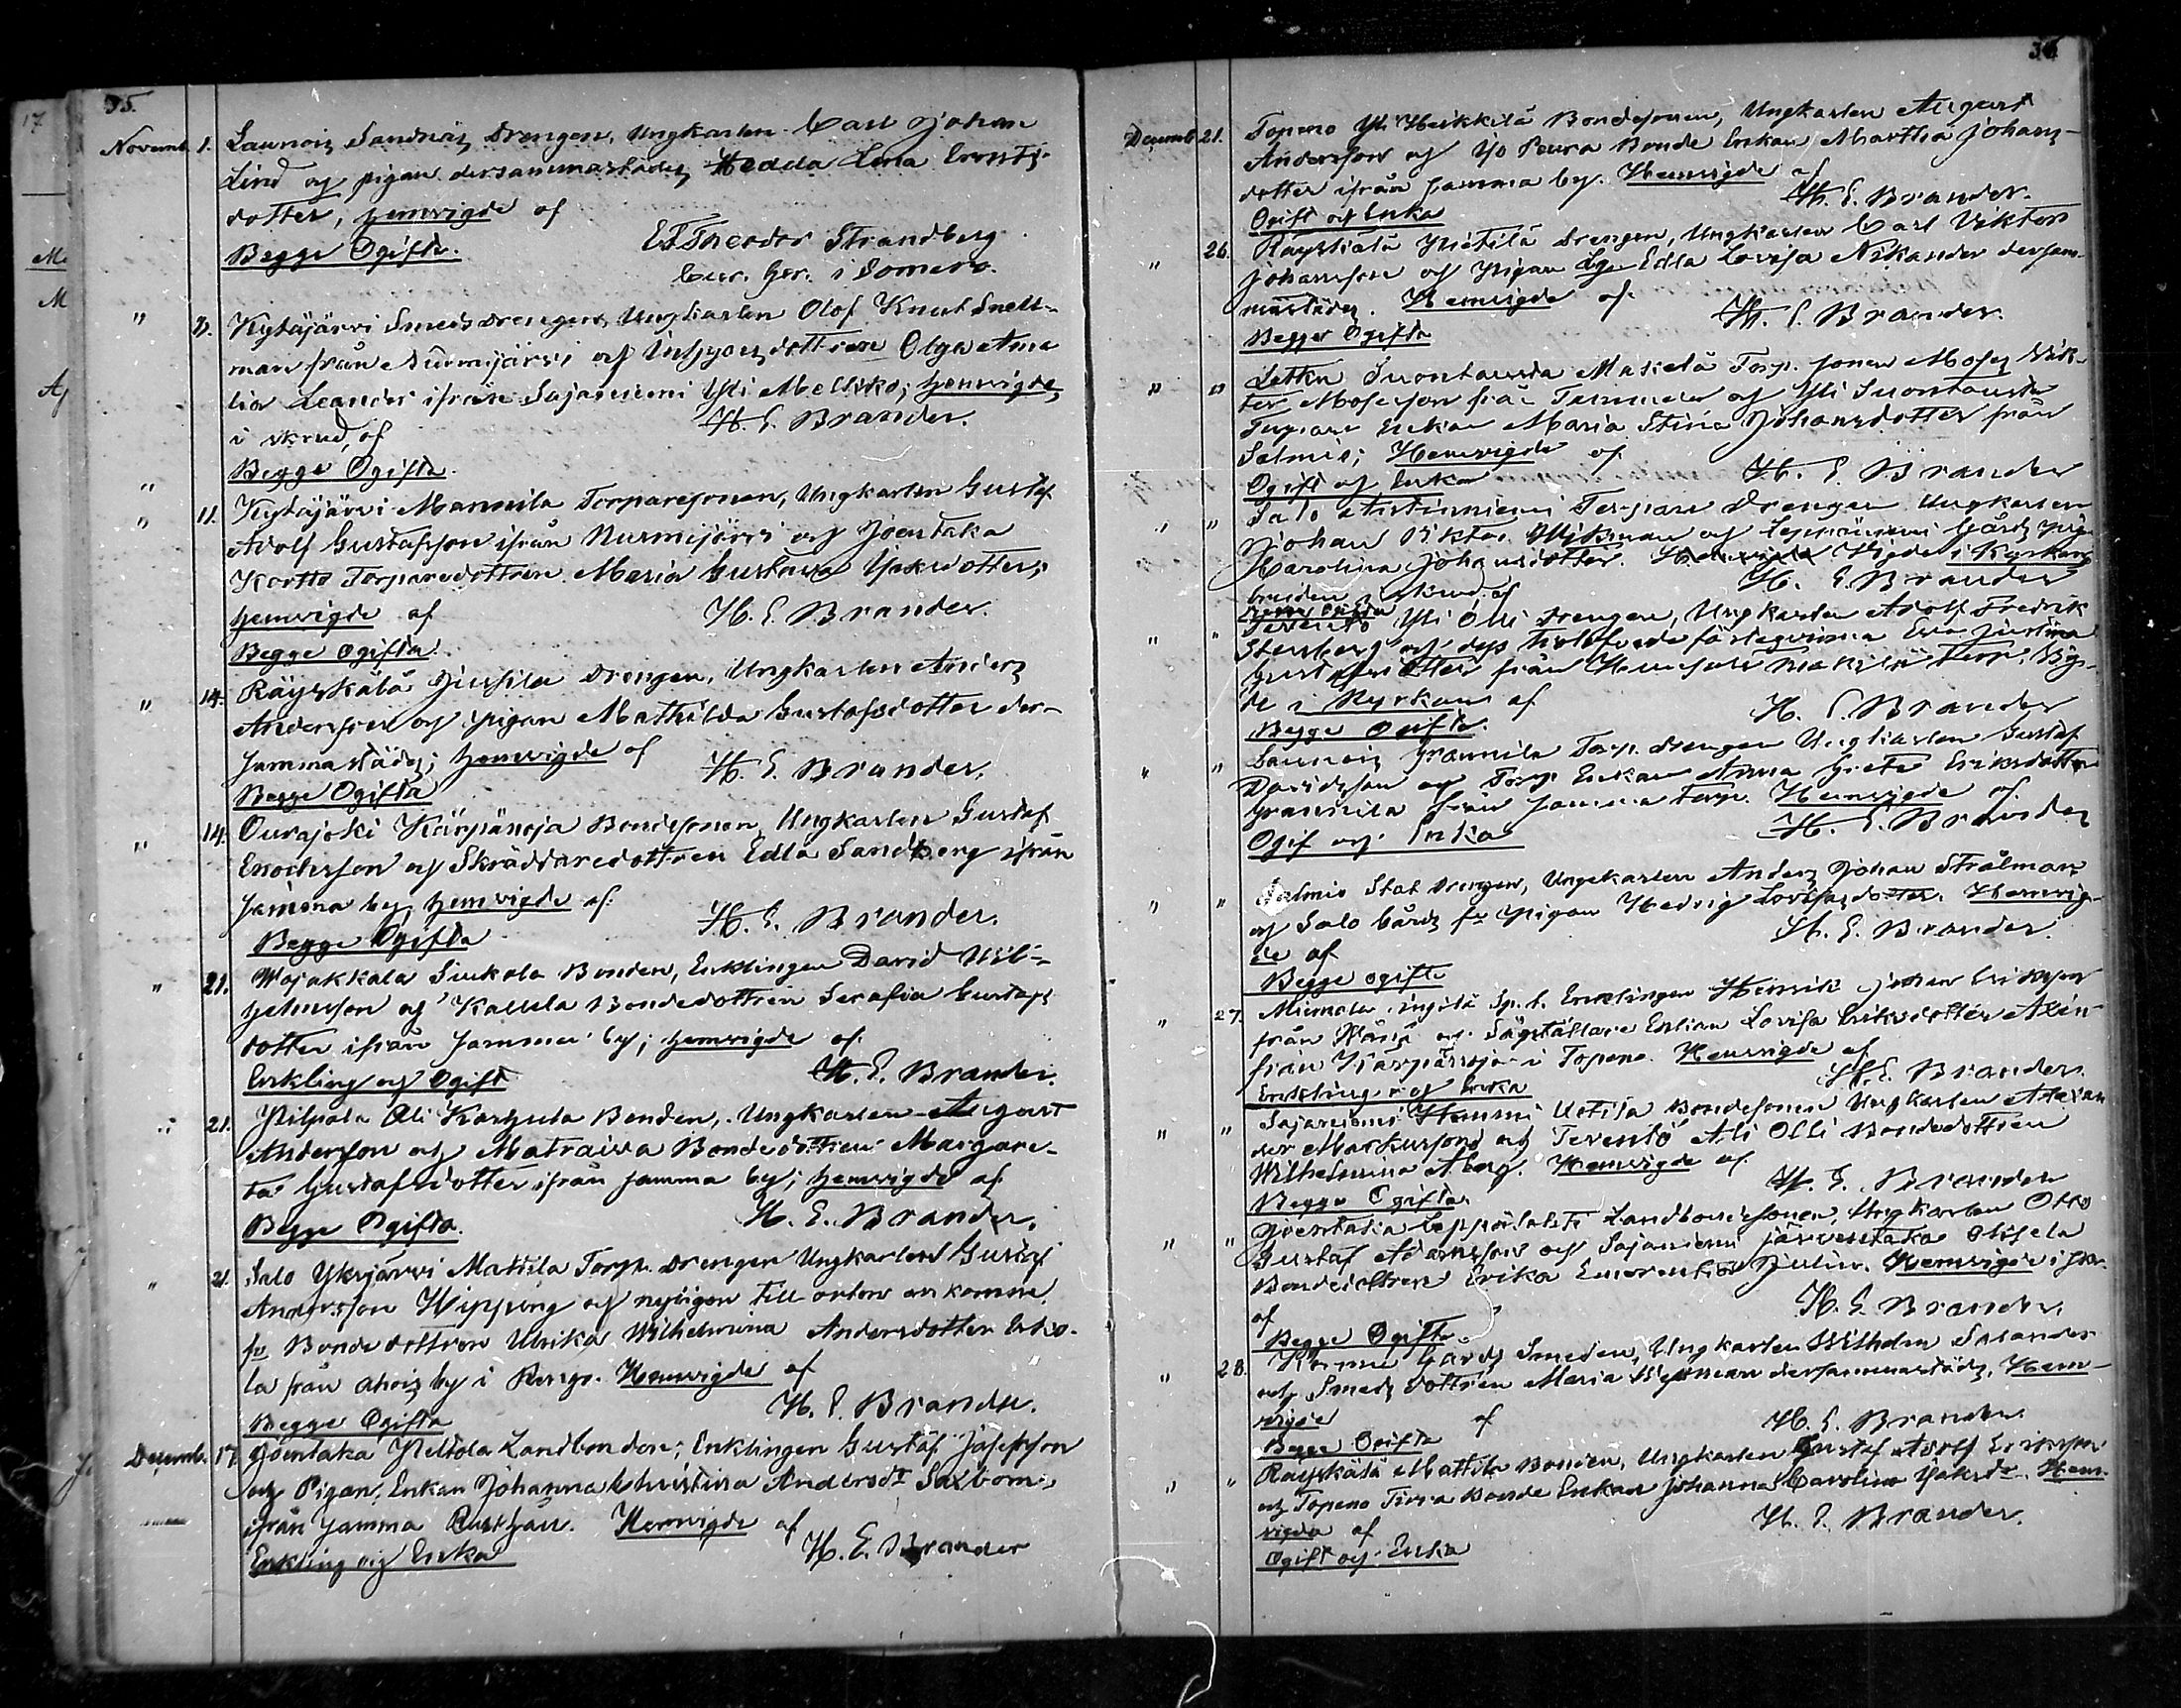 35.
Novemb. 1. Launois Sandnäs Drengen, Ungkarlen Carl Johan
Lind och pigan dersammastädes Hedda Lena Ernsts-
dotter, hemvigde af
Begge Ogifta. Theodor Strandberg
i Somero.
" 3. Kytäjärvi Smedsdrengen, Ungkarlen Olof Knut Snell-
man från Nurmijärvi och dottren Olga Ama-
lia Leander ifrån Sajaniemi Yli Mellikö; hemvigde,
i skrud, af H. E. Brander.
Begge Ogifta.
"
" 11. Kytäjärvi Mannila Torparesonen, Ungkarlen Gustaf
Adolf Gustafsson ifrån Nurmijärvi och Joentaka
Kortto Torparedottren Maria Gustava Jakesdotter;
hemvigde af H. E. Brander.
Begge Ogifta.
" 14. Räyskälä Jussila Drengen, Ungkarlen Anders
Andersson och pigan Mathilda Gustafsdotter der-
sammastädes; hemvigde af H. E. Brander.
Begge Ogifta
" 14. Ourajoki Kärpänoja Bondesonen, Ungkarlen Gustaf
Enochsson och Skräddaredottren Edla Sandberg ifrån
samma by, hemvigde af H. E. Brander.
Begge Ogifta
" 21. Wojakkala Sirkola Bonden, Enklingen David Wil-
helmsson och Bondedottren Serafia Gustafs
dotter ifrån samma by; hemvigde af
Enkling och Ogift H. E. Brander.
" 21. Pilpala Ali Karhula Bonden, Ungkarlen August
Andersson och Matraiva Bondedottren Margare-
ta Gustafsdotter ifrån samma by; hemvigde af
Begge Ogifta. H. E. Brander.
" 21. Salo Yksjärvi Mattila Torp. Drengen Ungkarlen Gustaf
Andersson Wipping och nyligen till orten ankomne
fv Bondedottren Ulrika Wilhelmina Andersdotter Erko-
la från by i Rengo. Hemvigde af
Begge Ogifta H. E. Brander.
Decemb. 17. Joentaka Peltola Landbonden; Enklingen Gustaf Josefsson
och Pigan, Enkan Johanna Christina Andersdr Saxbom,
ifrån samma Rusthåll. Hemvigde af
Enkling och Enka H. E. Brander
36
Decemb. 21. Topeno Yli Heikkilä Bondesonen, Ungkarlen August
Andersson och Yo Peura Bonde Enkan Martha Johans-
dotter ifrån samma by. Hemvigde af
Ogift och Enka H. E. Brander.
" 26. Räyskälä Pietilä Drengen, Ungkarlen Carl Viktor
Johansson och Pigan Edla Lovisa Nikander dersam-
mastädes. Hemvigde af
Begge Ogifta H. E. Brander.
" " Letku Suontausta Mäkelä Torp. sonen Moses Vik-
tor Mosesson från Tammela och Yli Suontausta
Torpare Enkan Maria Stina Johansdotter från
Salmis; Hemvigde af
Ogift och Enka H. E. Brander
" " Salo Antinniemi Torpare Drengen Ungkarlen
Johan Viktor Wikman och Leppäniemi Gårds pigan
Karolina Johansdotter. Vigde i Kyrkan
bruden i skrud af H. E. Brander
Begge Ogifta
" " Tervento Yli Olli Drengen, Ungkarlen Adolf Fredrik
Stenberg och dess trolofvade fästeqvinna Eva Justina
Gustafsdotter från Mäkylä Torp. Vig-
de i Kyrkan af
Begge Ogifta. H. E. Brander
" " Launois Grannila Torp. drengen Ungkarlen Gustaf
Davidsson och Torp. Enkan Anna Greta Eriksdotter
Grannila från samma Torp. Hemvigde af
Ogift och Enka H. E. Brander
" " Salmis Stat drengen, Ungkarlen Anders Johan Strålman
och Salo Gårds fv Pigan Hedvig Lovisasdotter. Hemvig-
de af H. E. Brander.
Begge ogifte
" 27. Enklingen Henrik Johan Eriksson
från och Sågställare Enkan Lovisa Eriksdotter Axén
från Kärpänoja i Topeno. Hemvigde af
Enkling och Enka H. E. Brander.
" " Sajaniemi Hemmi Uotila Bondesonen Ungkarlen Alexan-
der Markusson och Tervento Ali Olli Bondedottren
Wilhelmina Åberg. Hemvigde af
Begge Ogifta H. E. Brander
" " Joentaka Leppälahti Landbondesonen, Ungkarlen Otto
Gustaf Adamsson och Sajaniemi Järventaka Ollsela
Bondedottren Erika Emerentia Julin. Hemvigde i skr.
af H. E. Brander.
Begge Ogifta
" 28. Gårds Smeden, Ungkarlen Wilhelm Salander
och Smeds dottren Maria Nyman dersammastädes, Hem-
vigde af H. E. Brander.
Begge Ogifta
" " Räyskälä Mattila Bonden, Ungkarlen Gustaf Adolf Eriksson
och Topeno Tirra Bonde Enkan Johanna Carolina Jaksdr. Hem-
vigda af H. E. Brander.
Ogift och Enka